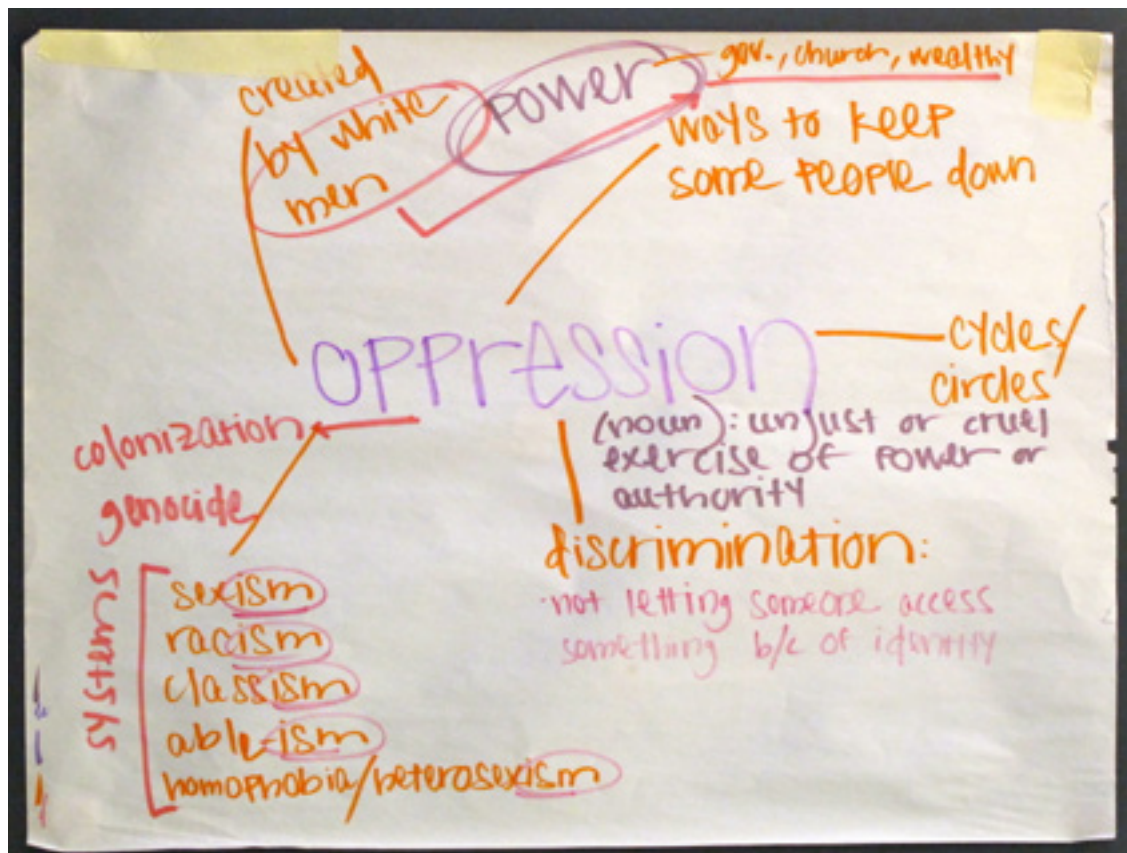 created
by white
men
POWER
gov., church, wealthy
ways to keep
some people down
oppression
cycles/
circles
(noun): unjust or cruel
exercise of power or
authority
colonization
genocide
discrimination:
·not letting someone access
something b/c of identity
systems
sexism
racism
classism
able-ism
homophobia/heterosexism